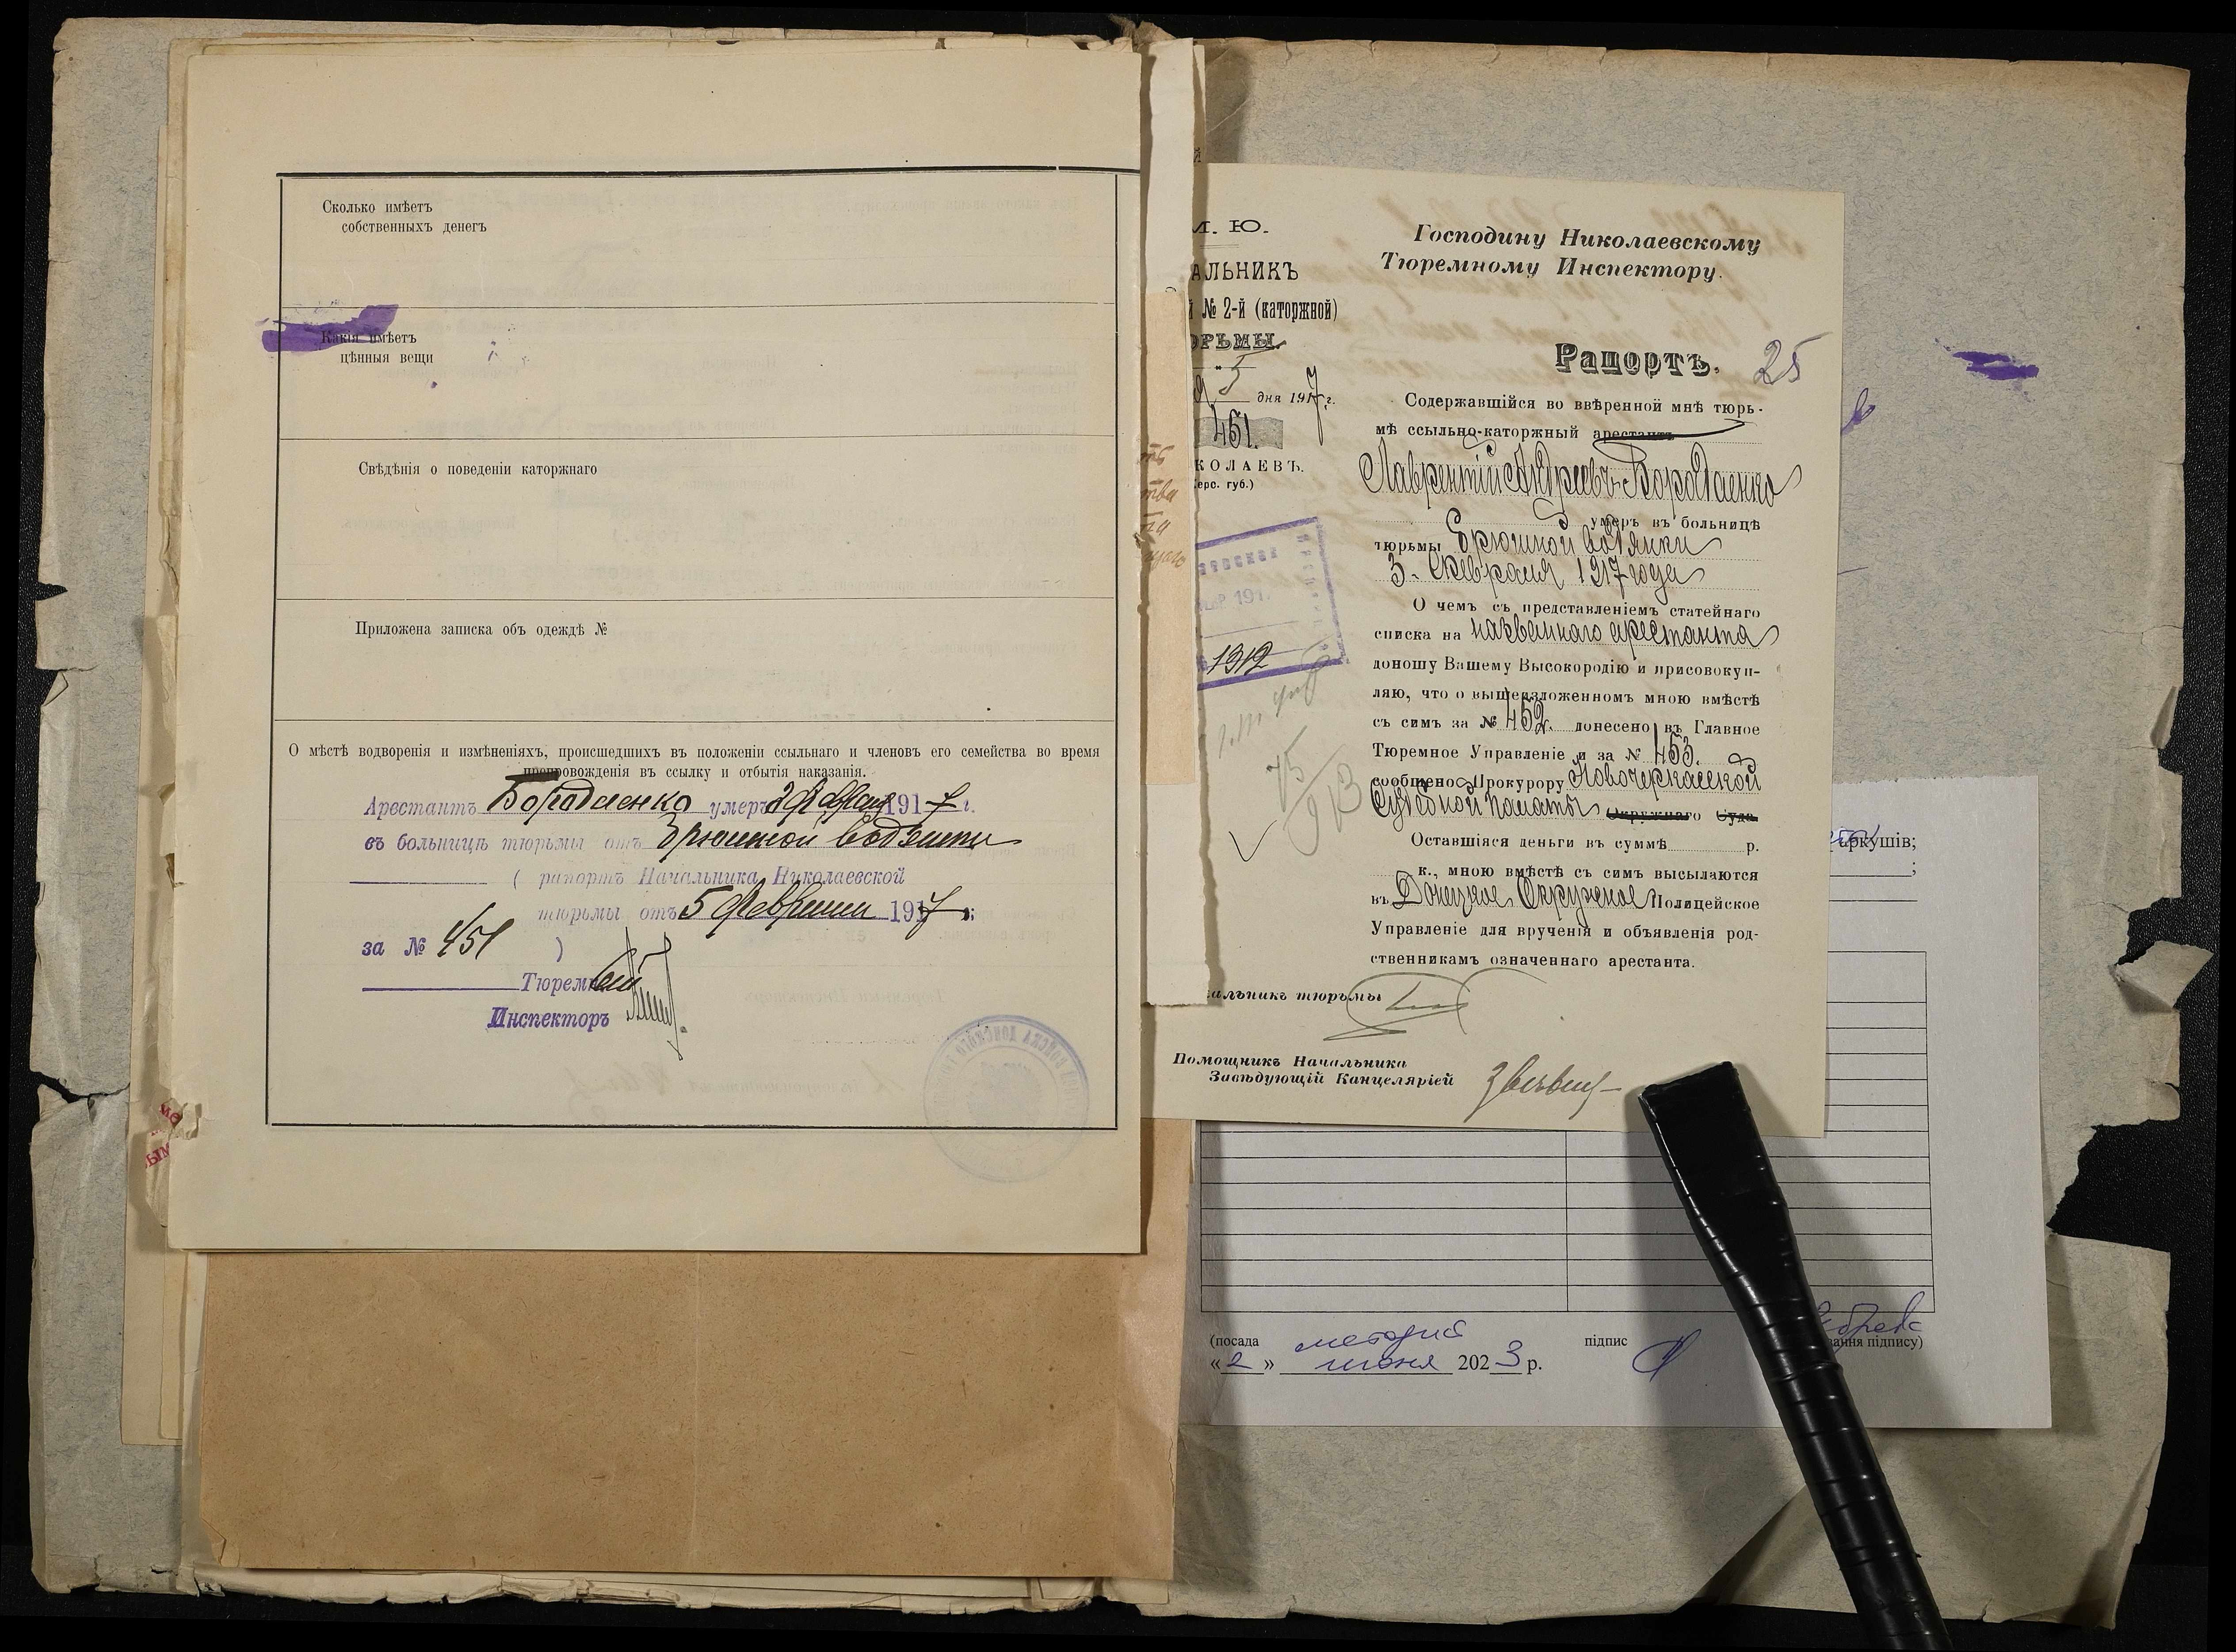 Сколько имѣетъ
собственныхъ денегъ
Какія имѣетъ
цѣнныя вещи
Свѣдѣнія о поведеніи каторжнаго
Приложена записка объ одеждѣ №
О мѣстѣ водворенія и измѣненіяхъ, происшедшихъ въ положеніи ссыльнаго и членовъ его семейства во время
препровожденія въ ссылку и отбытія наказанія.
Арестантъ Бородаенко умеръ 3 февраля 1917 г.
въ больницѣ тюрьмы отъ брюшной водянки
( рапортъ Начальника Николаевской
тюрьмы отъ 5 февраля 1917 г.
за № 451 )
Тюремный
Инспекторъ
М. Ю.
АЛЬНИКЪ
й № 2-й (каторжной)
ЮРЬМЫ.
5 дня 1917 г.
451.
КОЛАЕВЪ.
ерс. губ.)
1912
75
913
Господину Николаевскому
Тюремному Инспектору.
Рапортъ.
25
Содержавшійся во ввѣренной мнѣ тюрь-
мѣ ссыльно-каторжный арестантъ
Лаврентій Андреевъ Бородаенко
умеръ въ больницѣ
тюрьмы брюшной водянки
3 февраля 1917 года
О чемъ съ представленіемъ статейнаго
списка на названнаго арестанта
доношу Вашему Высокородію и присовокуп-
ляю, что о вышеизложенномъ мною вмѣстѣ
съ симъ за № 452. донесено въ Главное
Тюремное Управленіе и за № 453.
сообщено Прокурору Новочеркасской
Судебной Палаты Окружнаго Суда
Оставшіяся деньги въ суммѣ р.
к., мною вмѣстѣ съ симъ высылаются
въ Донецкое Окружное Полицейское
Управленіе для врученія и объявленія род-
ственникамъ означеннаго арестанта.
альникъ тюрьмы
Помощникъ Начальника
Завѣдующій Канцеляріей
аркушів;
(посада
підпис
вання підпису)
«2» июня 2023 р.